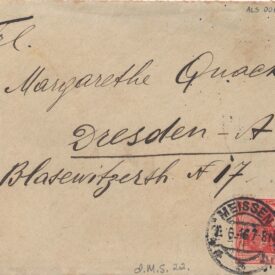 Fl.
Margarethe Quack
Dresden-A
Blasewitzerstr N 17
MEISSEN
J.M.S. 22.